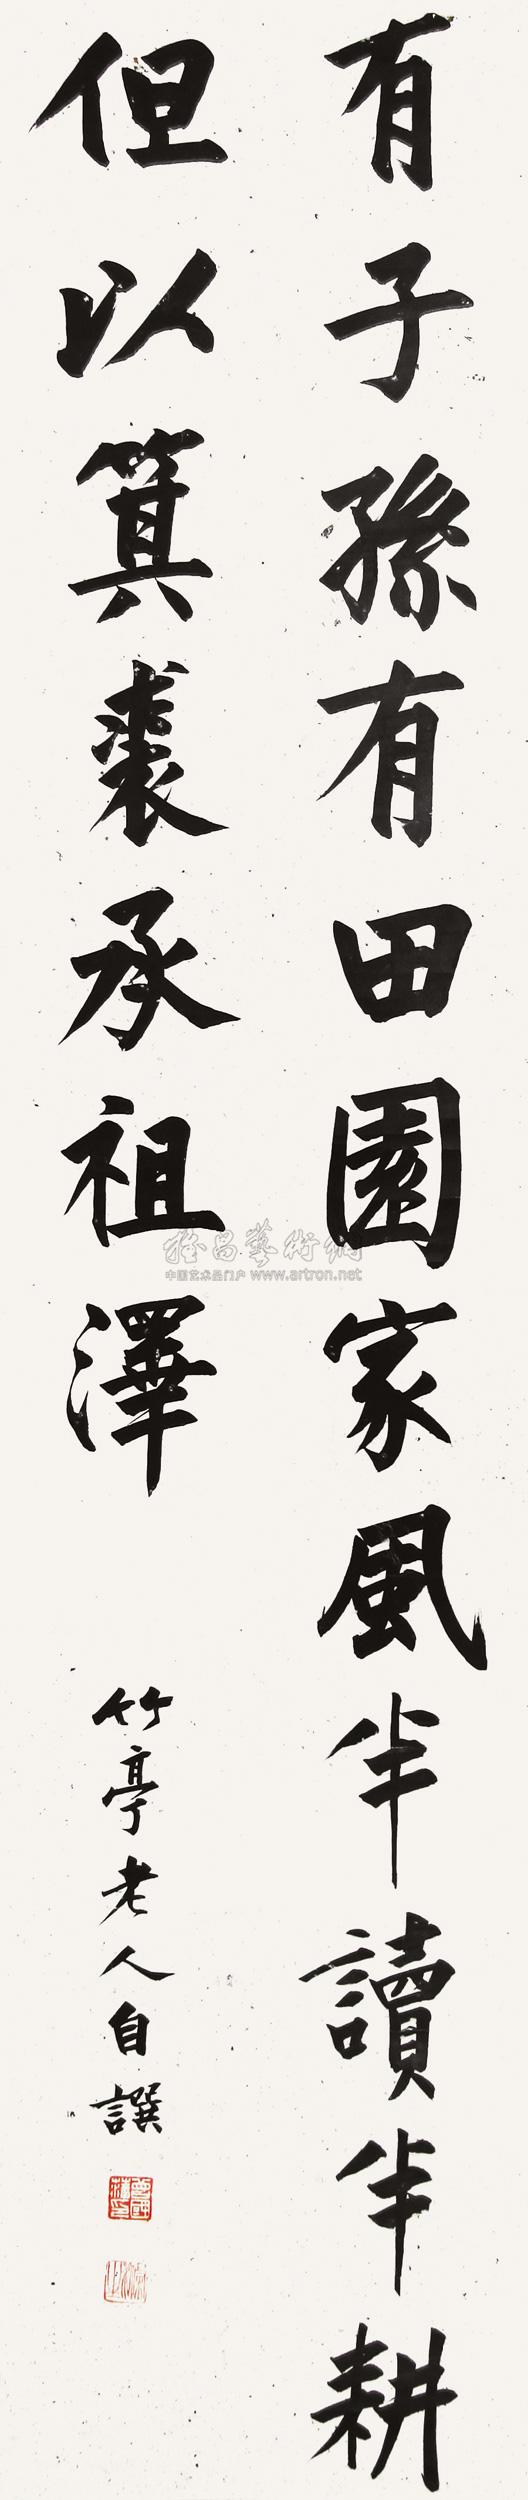 有子孫有田園家風半讀半耕
但以箕裘承祖澤
竹亭老人自譔
中国艺术品门户 www.artron.net